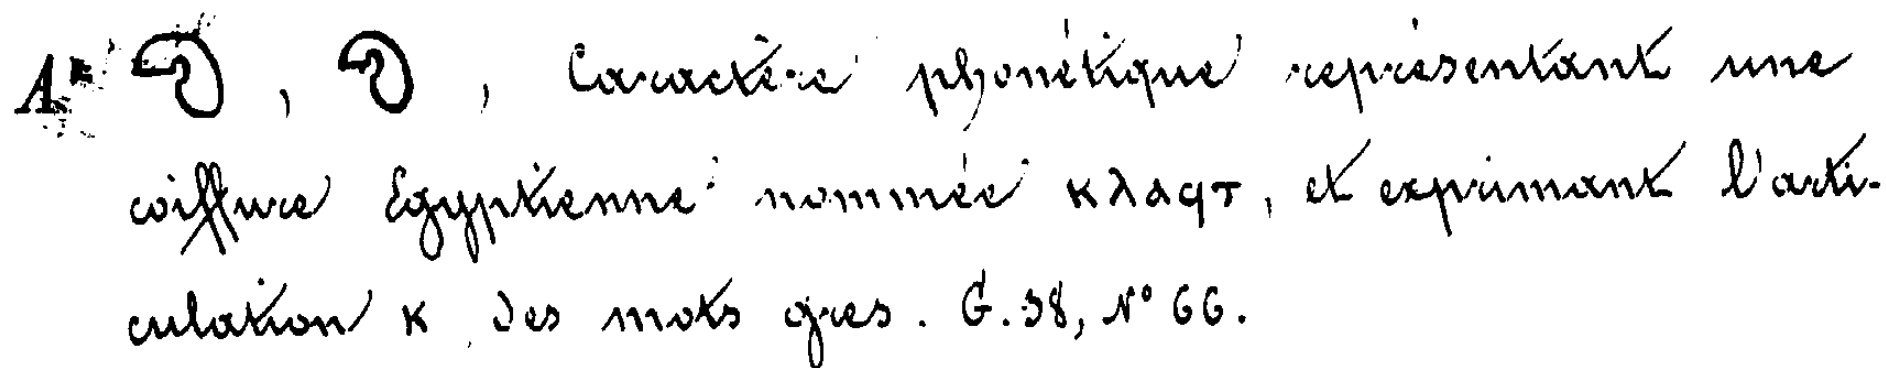 A , , Caractère phonétique représentant une
coiffure Egyptienne nommée ⲕⲗⲁϥⲧ, et exprimant l'arti-
culation K des mots grecs. G. 38, N° 66.